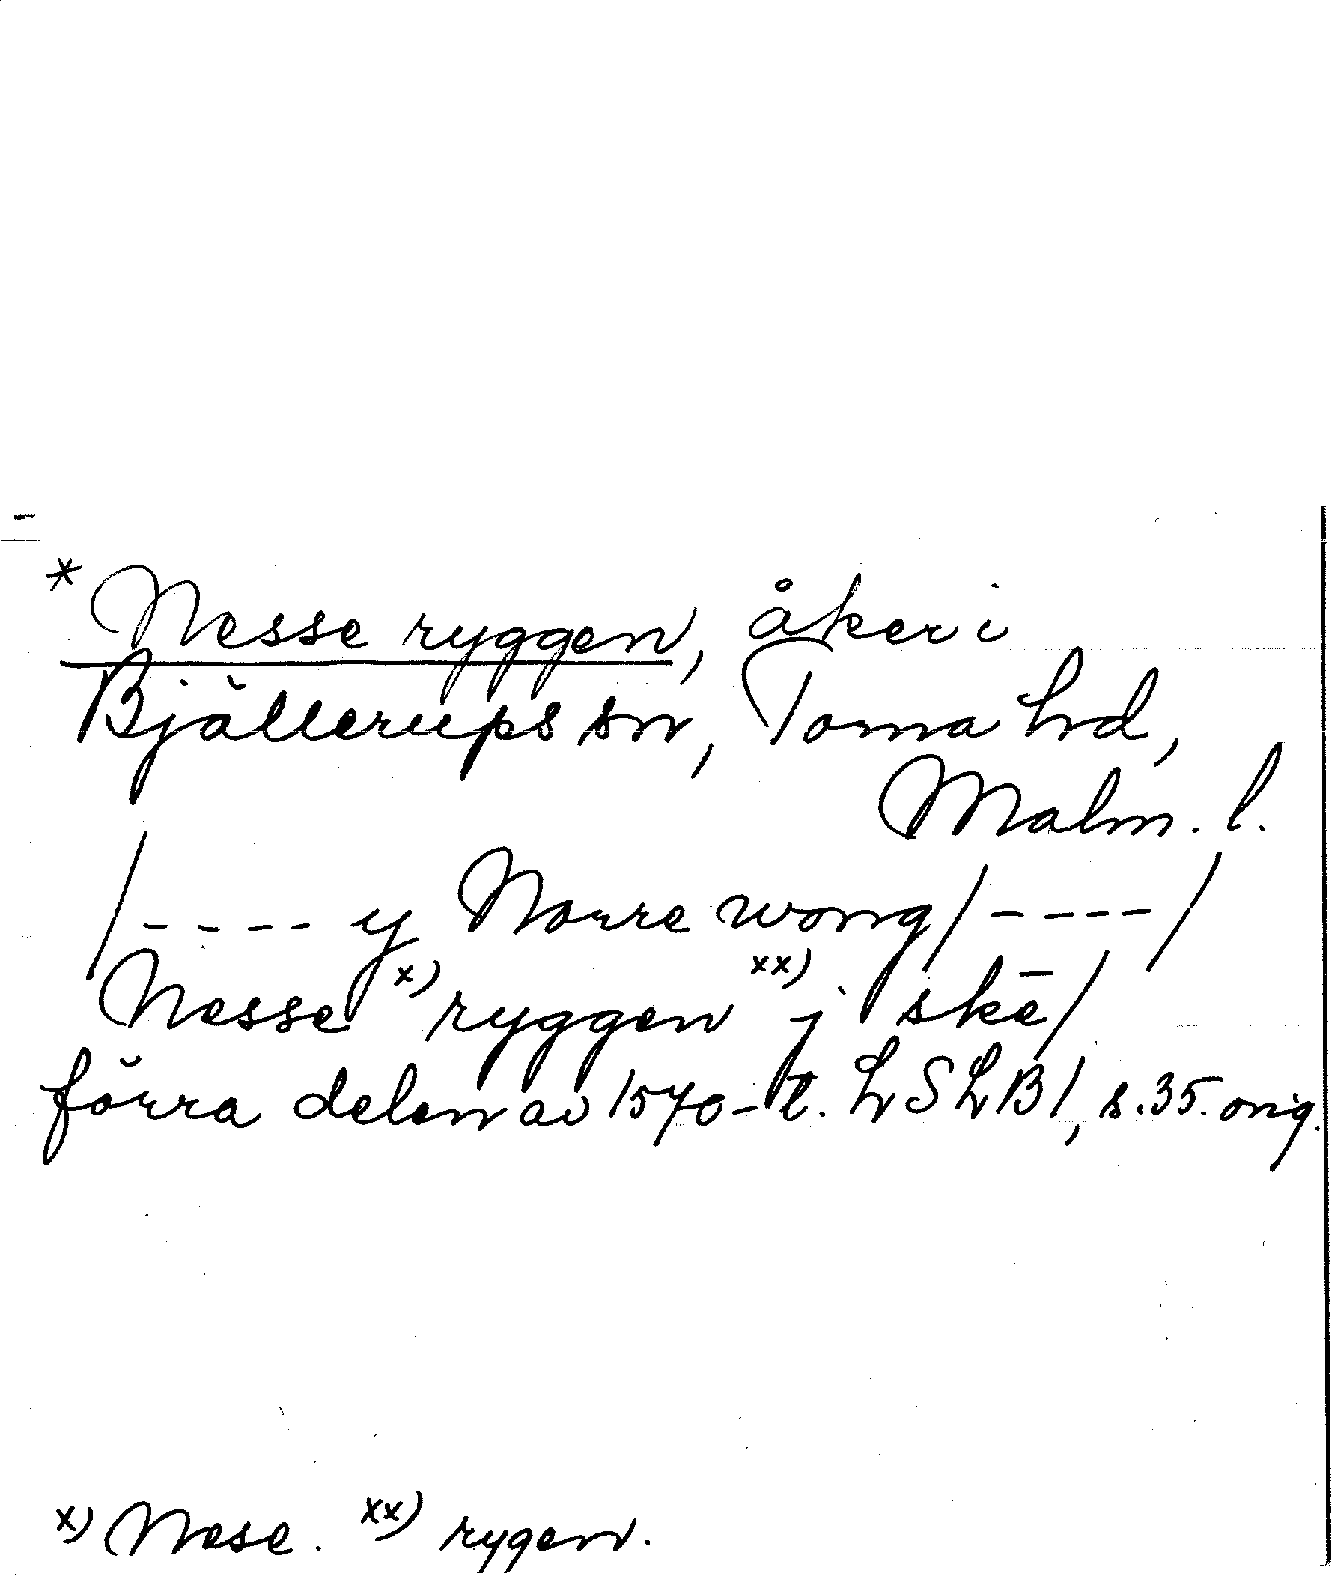 * Nesse ryggen, åker i
Bjällerups sn, Torna hd,
Malm. l.
/---- y Norre wong/----/
Nesse x) ryggen xx) j skē/
förra delen av 1570-t. LSLB1, s. 35. orig.
x) Nese. xx) rygen.